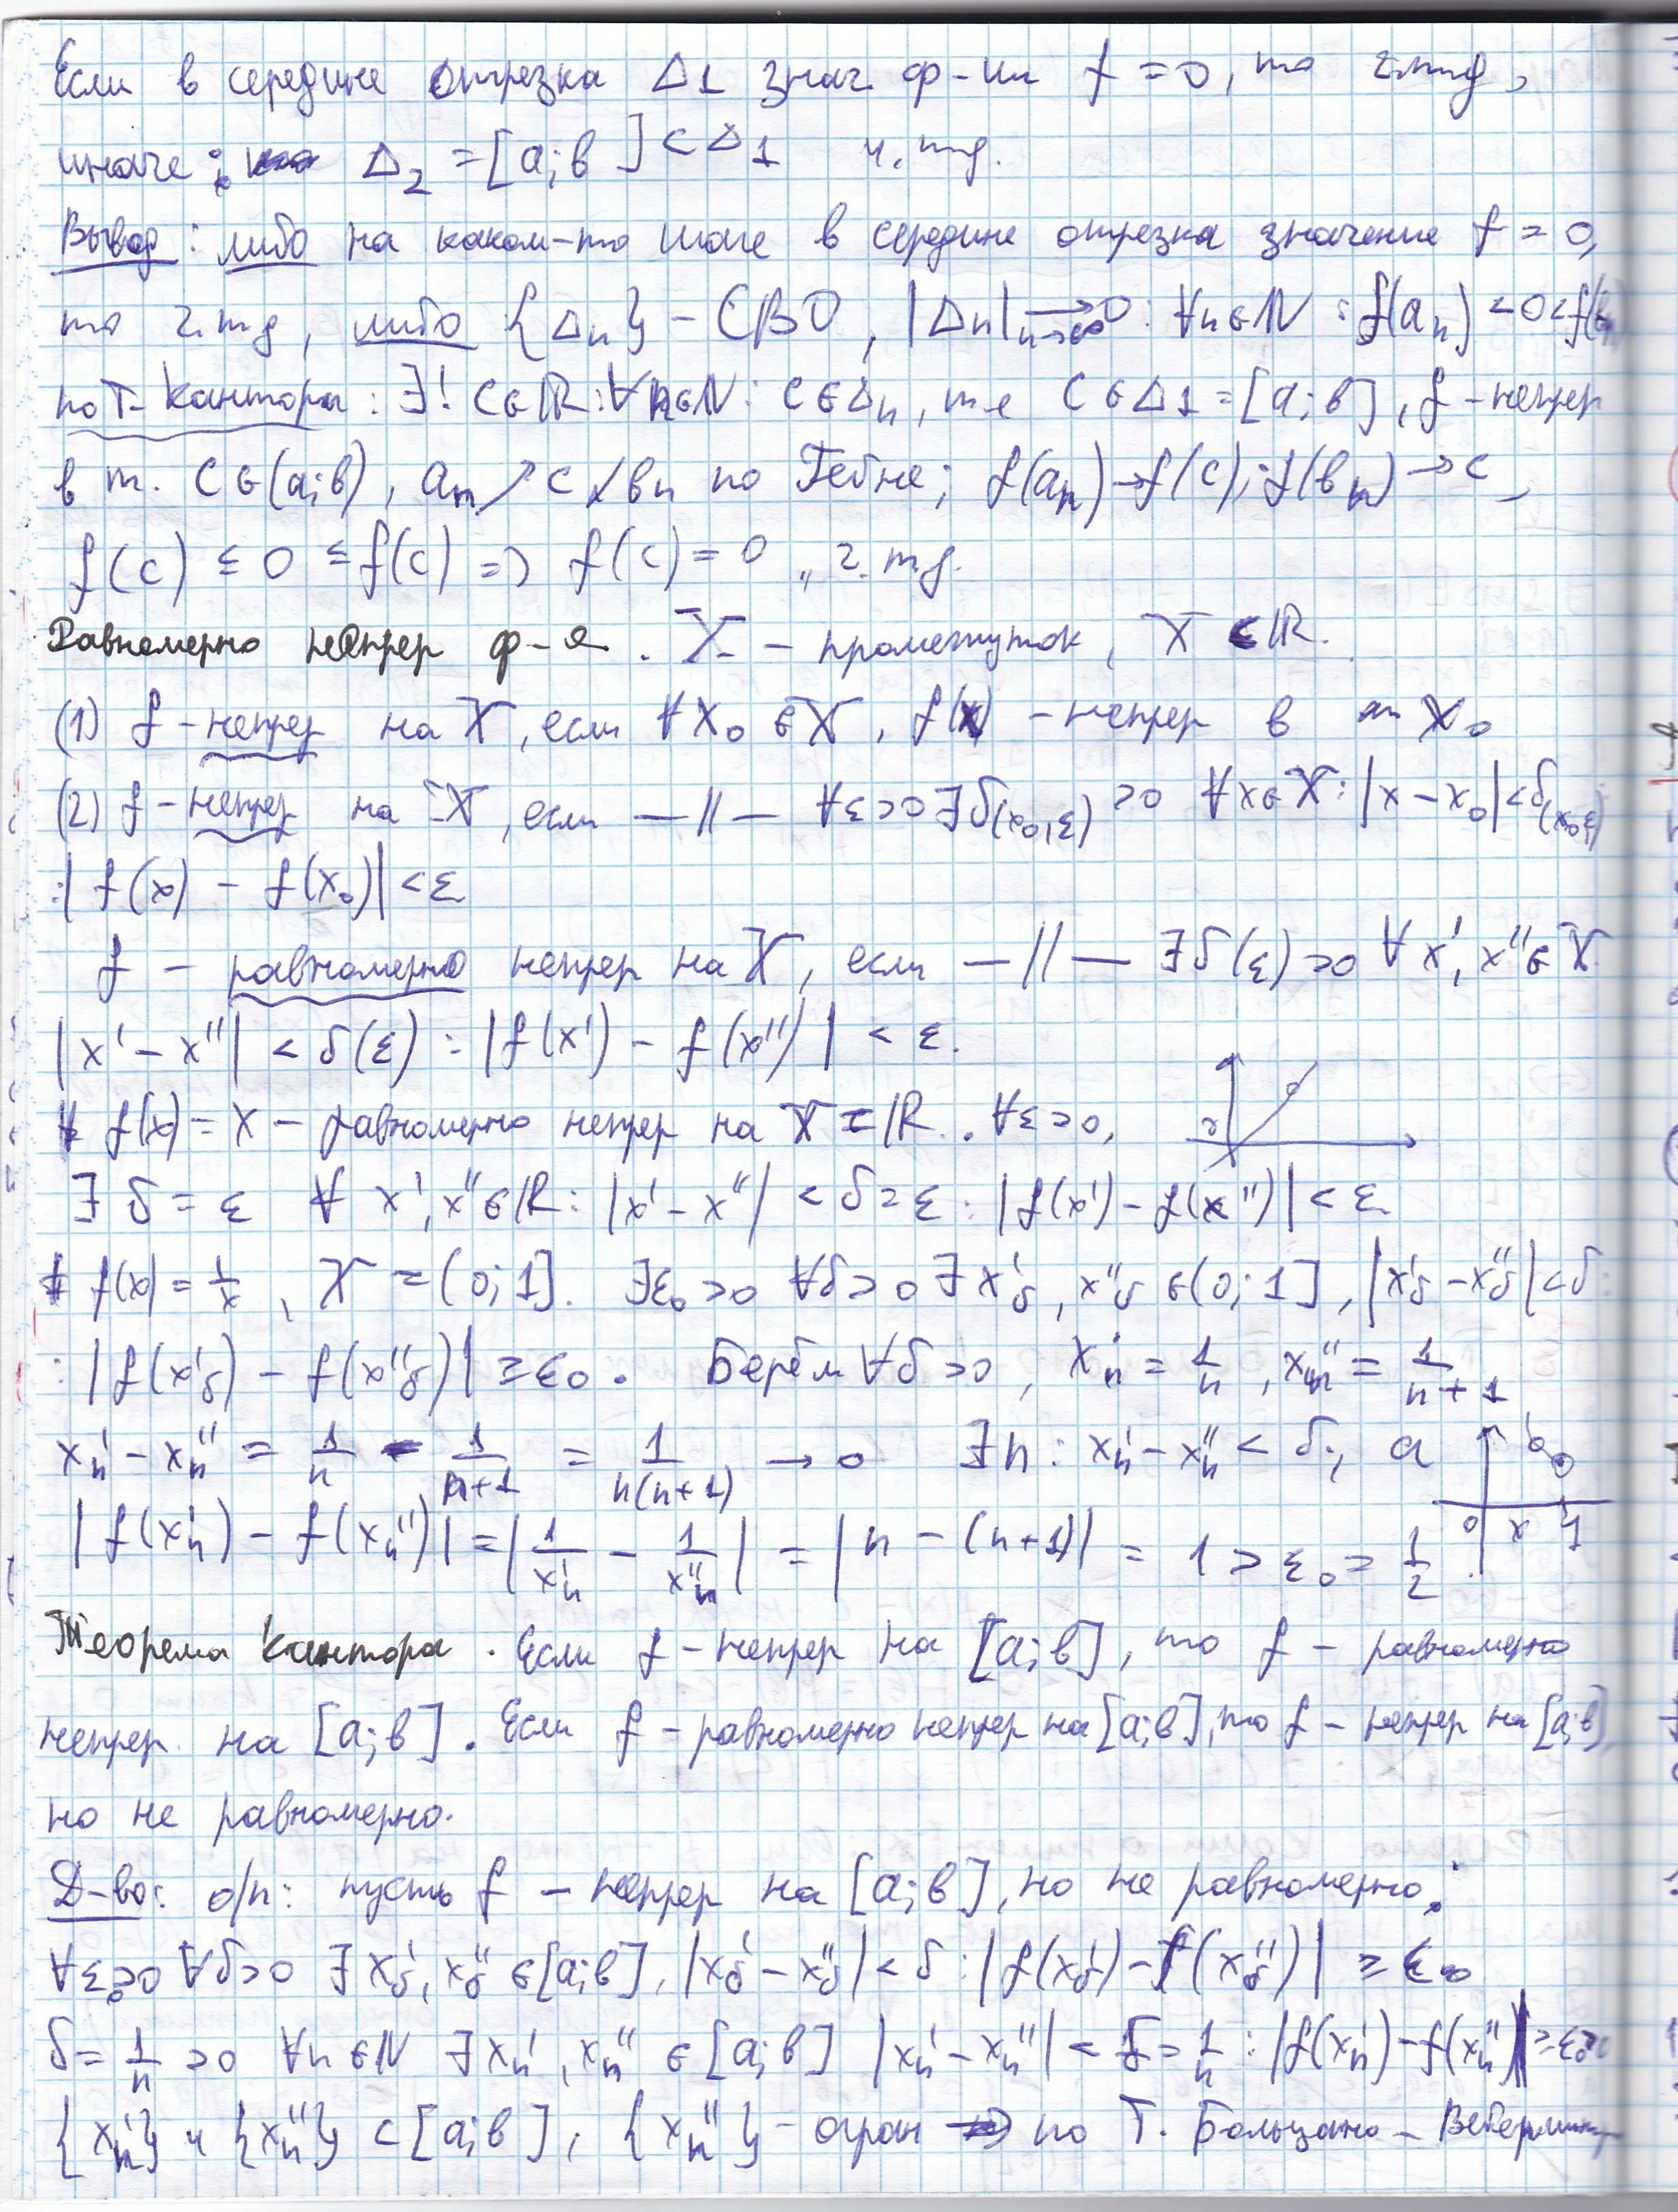 Если в середине отрезка Δ1 знач. ф-ии f = 0, то ч.т.д,
иначе: Δ₂ = [a; b] ⊂ Δ1 ч. тд.
Вывод: либо на каком-то шаге в середине отрезка значение f = 0,
то ч.тд, либо {Δn} – СВО, |Δn| →_{n→∞} 0 : ∀n∈ℕ : f(an) < 0 < f(bn)
по Т- Кантора: ∃! c∈ℝ:∀n∈ℕ: c∈Δn, т.е c∈Δ1=[a;b], f – непрер
в т. c∈(a;b), an ↗ c ↙ bn по Гейне; f(an)→f(c); f(bn) → c,
f(c) ≤ 0 ≤ f(c) => f(c) = 0 „ ч.тд.
Равномерно непрер ф-я. X – промежуток, X ⊂ ℝ.
(1) f – непрер на X, если ∀x₀ ∈ X, f(x) – непрер в т x₀
(2) f – непрер на X, если —//— ∀ε>0 ∃δ(x₀,ε) >0 ∀x∈X: |x – x₀|<δ(x₀,ε)
:|f(x) – f(x₀)| <ε
f – равномерно непрер на X, если —//— ∃δ(ε)>0 ∀ x', x''∈ X
|x' – x''| < δ(ε) : |f(x') – f(x'')| < ε.
# f(x) = x – равномерно непрер на X = ℝ. ∀ε>0,
∃ δ = ε ∀ x', x''∈ℝ: |x' – x''| < δ=ε : |f(x') – f(x'')| < ε
# f(x) = 1/x, X = (0; 1]. ∃ε₀>0 ∀δ>0 ∃ x'δ, x''δ ∈(0; 1], |x'δ – x''δ|<δ:
: |f(x'δ) – f(x''δ)| ≥ε₀. Берём ∀δ >0, x'n = 1/n, x''n = 1/(n+1)
x'n – x''n = 1/n – 1/(n+1) = 1/(n(n+1)) → 0 ∃n : x'n – x''n < δ; а
|f(x'n) – f(x''n)| = |1/x'n – 1/x''n| = |n – (n+1)| = 1 > ε₀ = 1/2
0 x 1
Теорема Кантора. Если f – непрер на [a;b], то f – равномерно
непрер на [a;b]. Если f – равномерно непрер на [a;b], то f – непрер на [a;b],
но не равномерно.
Д-во: о/п: пусть f – непрер на [a;b], но не равномерно:
∀ε₀>0 ∀δ>0 ∃ x'δ, x''δ ∈[a;b], |x'δ – x''δ| < δ : |f(x'δ) – f(x''δ)| ≥ ε₀
δ= 1/n >0 ∀n ∈ℕ ∃ x'n, x''n ∈ [a;b] |x'n – x''n| < δ = 1/n : |f(x'n) – f(x''n)| ≥ε₀
{x'n} и {x''n} ⊂ [a;b], {x''n} – огран => по Т. Больцано –